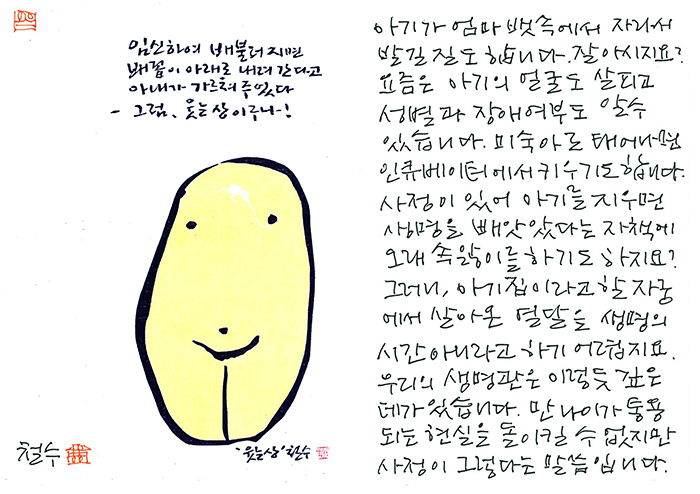 임신하여 배불러지면
배꼽이 아래로 내려간다고
아내가 가르쳐 주었다
- 그럼, 웃는 상이구나-!
'웃는상' 철수
철수
아기가 엄마 뱃속에서 자라서
발길질도 합니다. 잘 아시지요?
요즘은 아기의 얼굴도 살피고
성별과 장애여부도 알 수
있습니다. 미숙아로 태어나면
인큐베이터에서 키우기도 합니다.
사정이 있어 아기를 지우면
생명을 빼앗았다는 자책에
오래 속앓이를 하기도 하지요?
그러니, 아기집이라고 할 자궁
에서 살아온 열달을 생명의
시간 아니라고 하기 어렵지요.
우리의 생명관은 이렇듯 깊은
데가 있습니다. 만 나이가 통용
되는 현실을 돌이킬 수 없지만
사정이 그렇다는 말씀입니다.